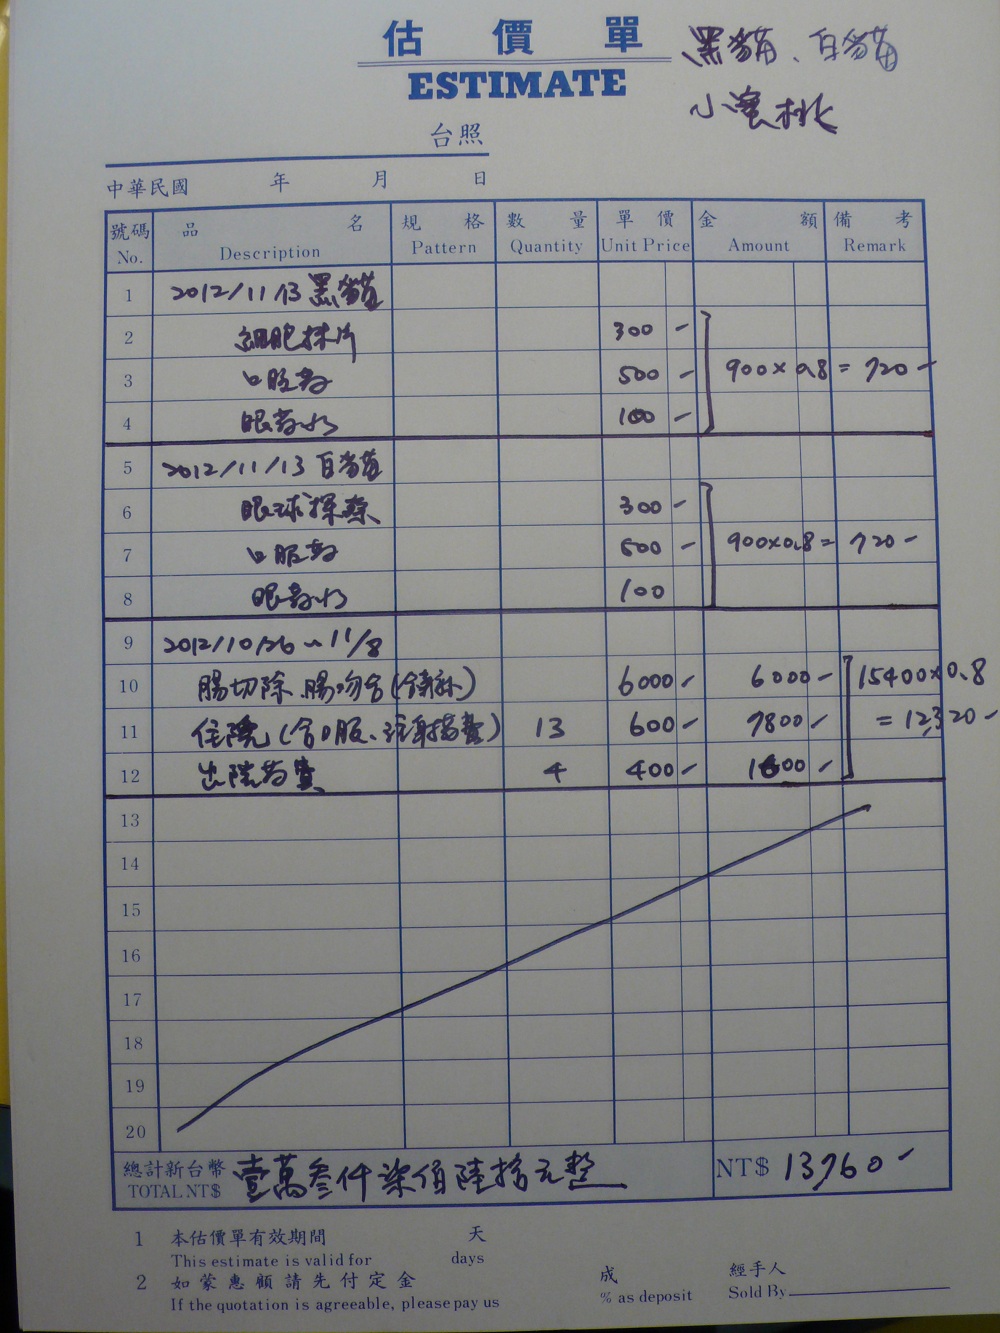 估價單
ESTIMATE
黑貓、白貓
小蜜桃
台照
中華民國 年 月 日
號碼 No. 品名 Description 規格 Pattern 數量 Quantity 單價 Unit Price 金額 Amount 備考 Remark
1 2012/11/13 黑貓
2 細胞抹片 300-
3 口服葯 500- 900×0.8=720-
4 眼葯水 100-
5 2012/11/13 白貓
6 眼球採察 300-
7 口服葯 500- 900×0.8= 720-
8 眼葯水 100
9 2012/10/26~11/8
10 腸切除、腸吻合 6000- 6000- 15400×0.8
11 住院(含口服、注射葯費) 13 600- 7800- =12,320-
12 出院葯費 4 400- 1600-
13
14
15
16
17
18
19
20
總計新台幣 TOTAL NT$ 壹萬叁仟柒佰陸拾元整 NT$ 13,760-
1 本估價單有效期間 天
This estimate is valid for days
2 如蒙惠顧請先付定金 成 經手人
If the quotation is agreeable, please pay us % as deposit Sold By